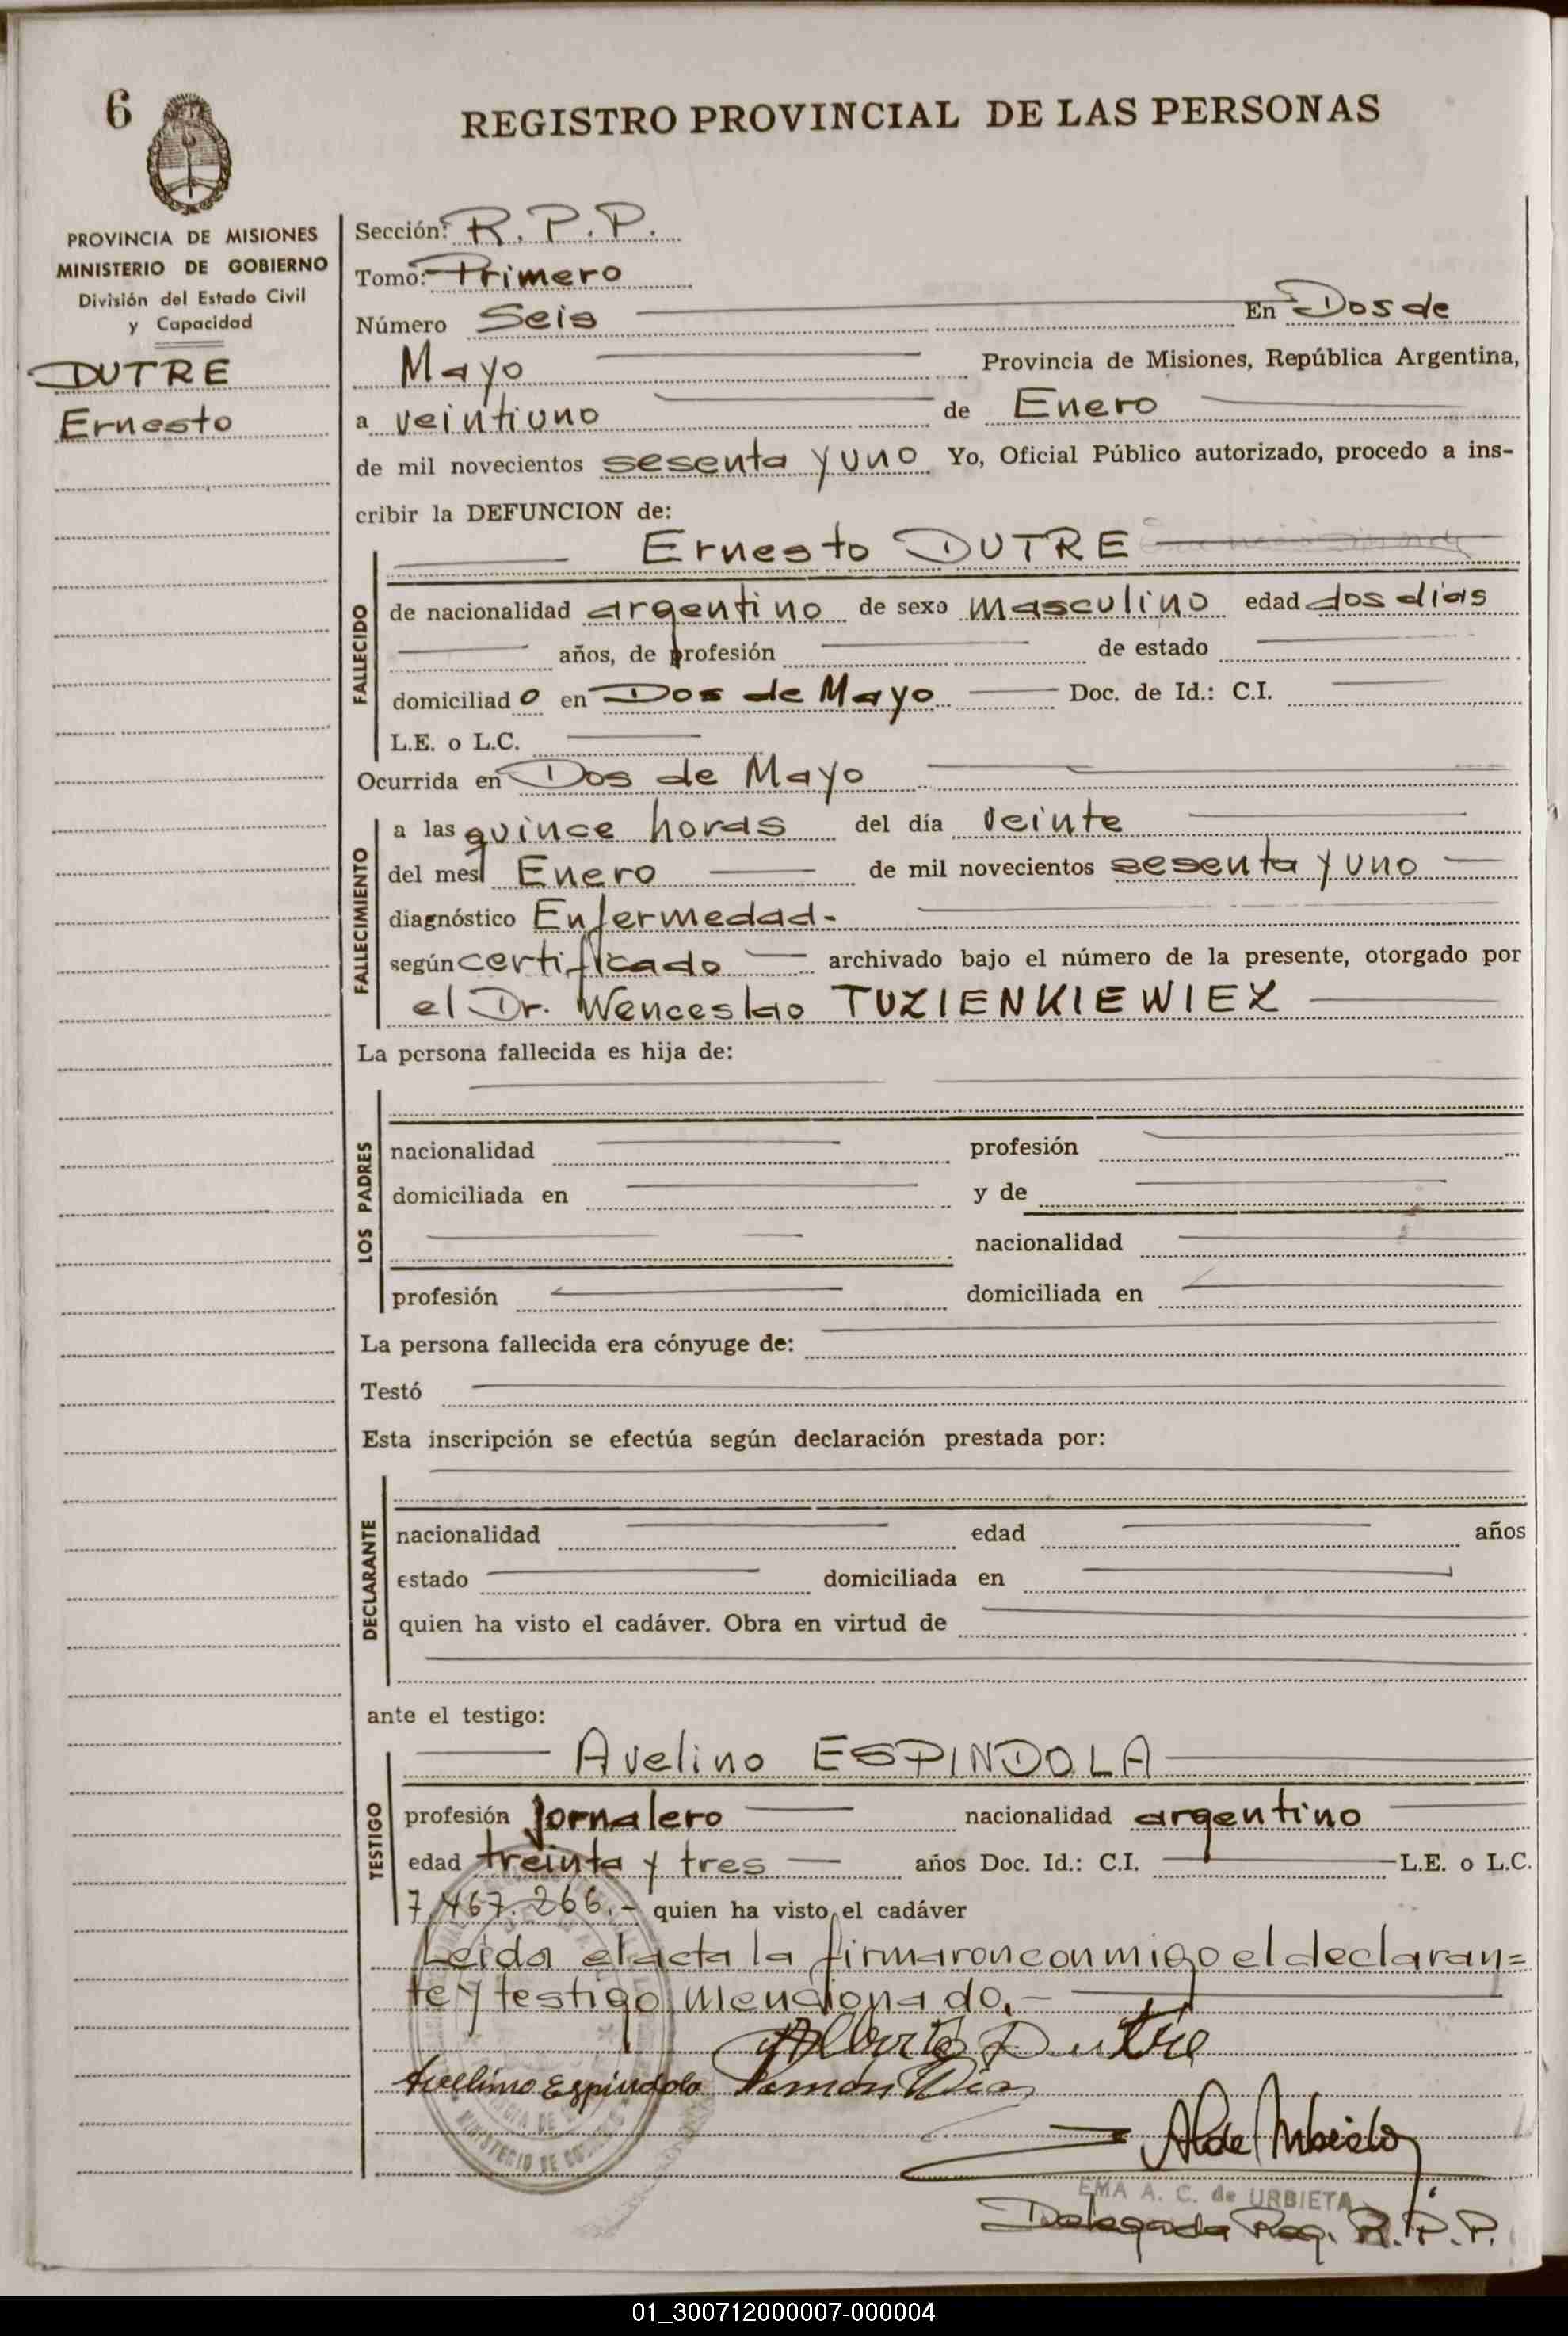 6
REGISTRO PROVINCIAL DE LAS PERSONAS
PROVINCIA DE MISIONES
MINISTERIO DE GOBIERNO
División del Estado Civil
y Capacidad
DUTRE
Ernesto
Sección: R. P. P.
Tomo: Primero
Número Seis En Dos de
Mayo Provincia de Misiones, República Argentina,
a veintiuno de Enero
de mil novecientos sesenta y uno Yo, Oficial Público autorizado, procedo a ins-
cribir la DEFUNCION de:
Ernesto DUTRE
FALLECIDO
de nacionalidad argentino de sexo masculino edad dos dias
años, de profesión de estado
domiciliado en Dos de Mayo Doc. de Id.: C.I.
L.E. o L.C.
Ocurrida en Dos de Mayo
FALLECIMIENTO
a las quince horas del día veinte
del mes Enero de mil novecientos sesenta y uno
diagnóstico Enfermedad.-
según certificado archivado bajo el número de la presente, otorgado por
el Dr. Wenceslao TUZIENKIEWIEZ
La persona fallecida es hija de:
LOS PADRES
nacionalidad profesión
domiciliada en y de
nacionalidad
profesión domiciliada en
La persona fallecida era cónyuge de:
Testó
Esta inscripción se efectúa según declaración prestada por:
DECLARANTE
nacionalidad edad años
estado domiciliada en
quien ha visto el cadáver. Obra en virtud de
ante el testigo:
TESTIGO
Avelino ESPINDOLA
profesión Jornalero nacionalidad argentino
edad treinta y tres años Doc. Id.: C.I. L.E. o L.C.
7.467.266.- quien ha visto el cadáver
Leida el acta la firmaron conmigo el declaran=
te y testigo mencionado.-
Alberto Dutre
Avellino Espindola Ramón
MINISTERIO DE
EMA A. C. de URBIETA
Delegada Reg. R. P. P.
01_300712000007-000004